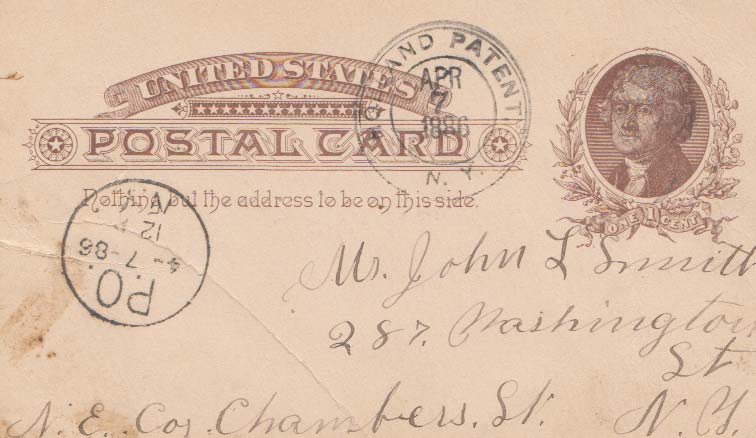 UNITED STATES
POSTAL CARD
Nothing but the address to be on this side.
AND PATENT
APR
7
1886
N.Y.
ONE 1 CENT
P.O.
4-7-86
12
Mr. John L Smith
287. Washington
St
N. E. Cor Chambers. St. N. Y.